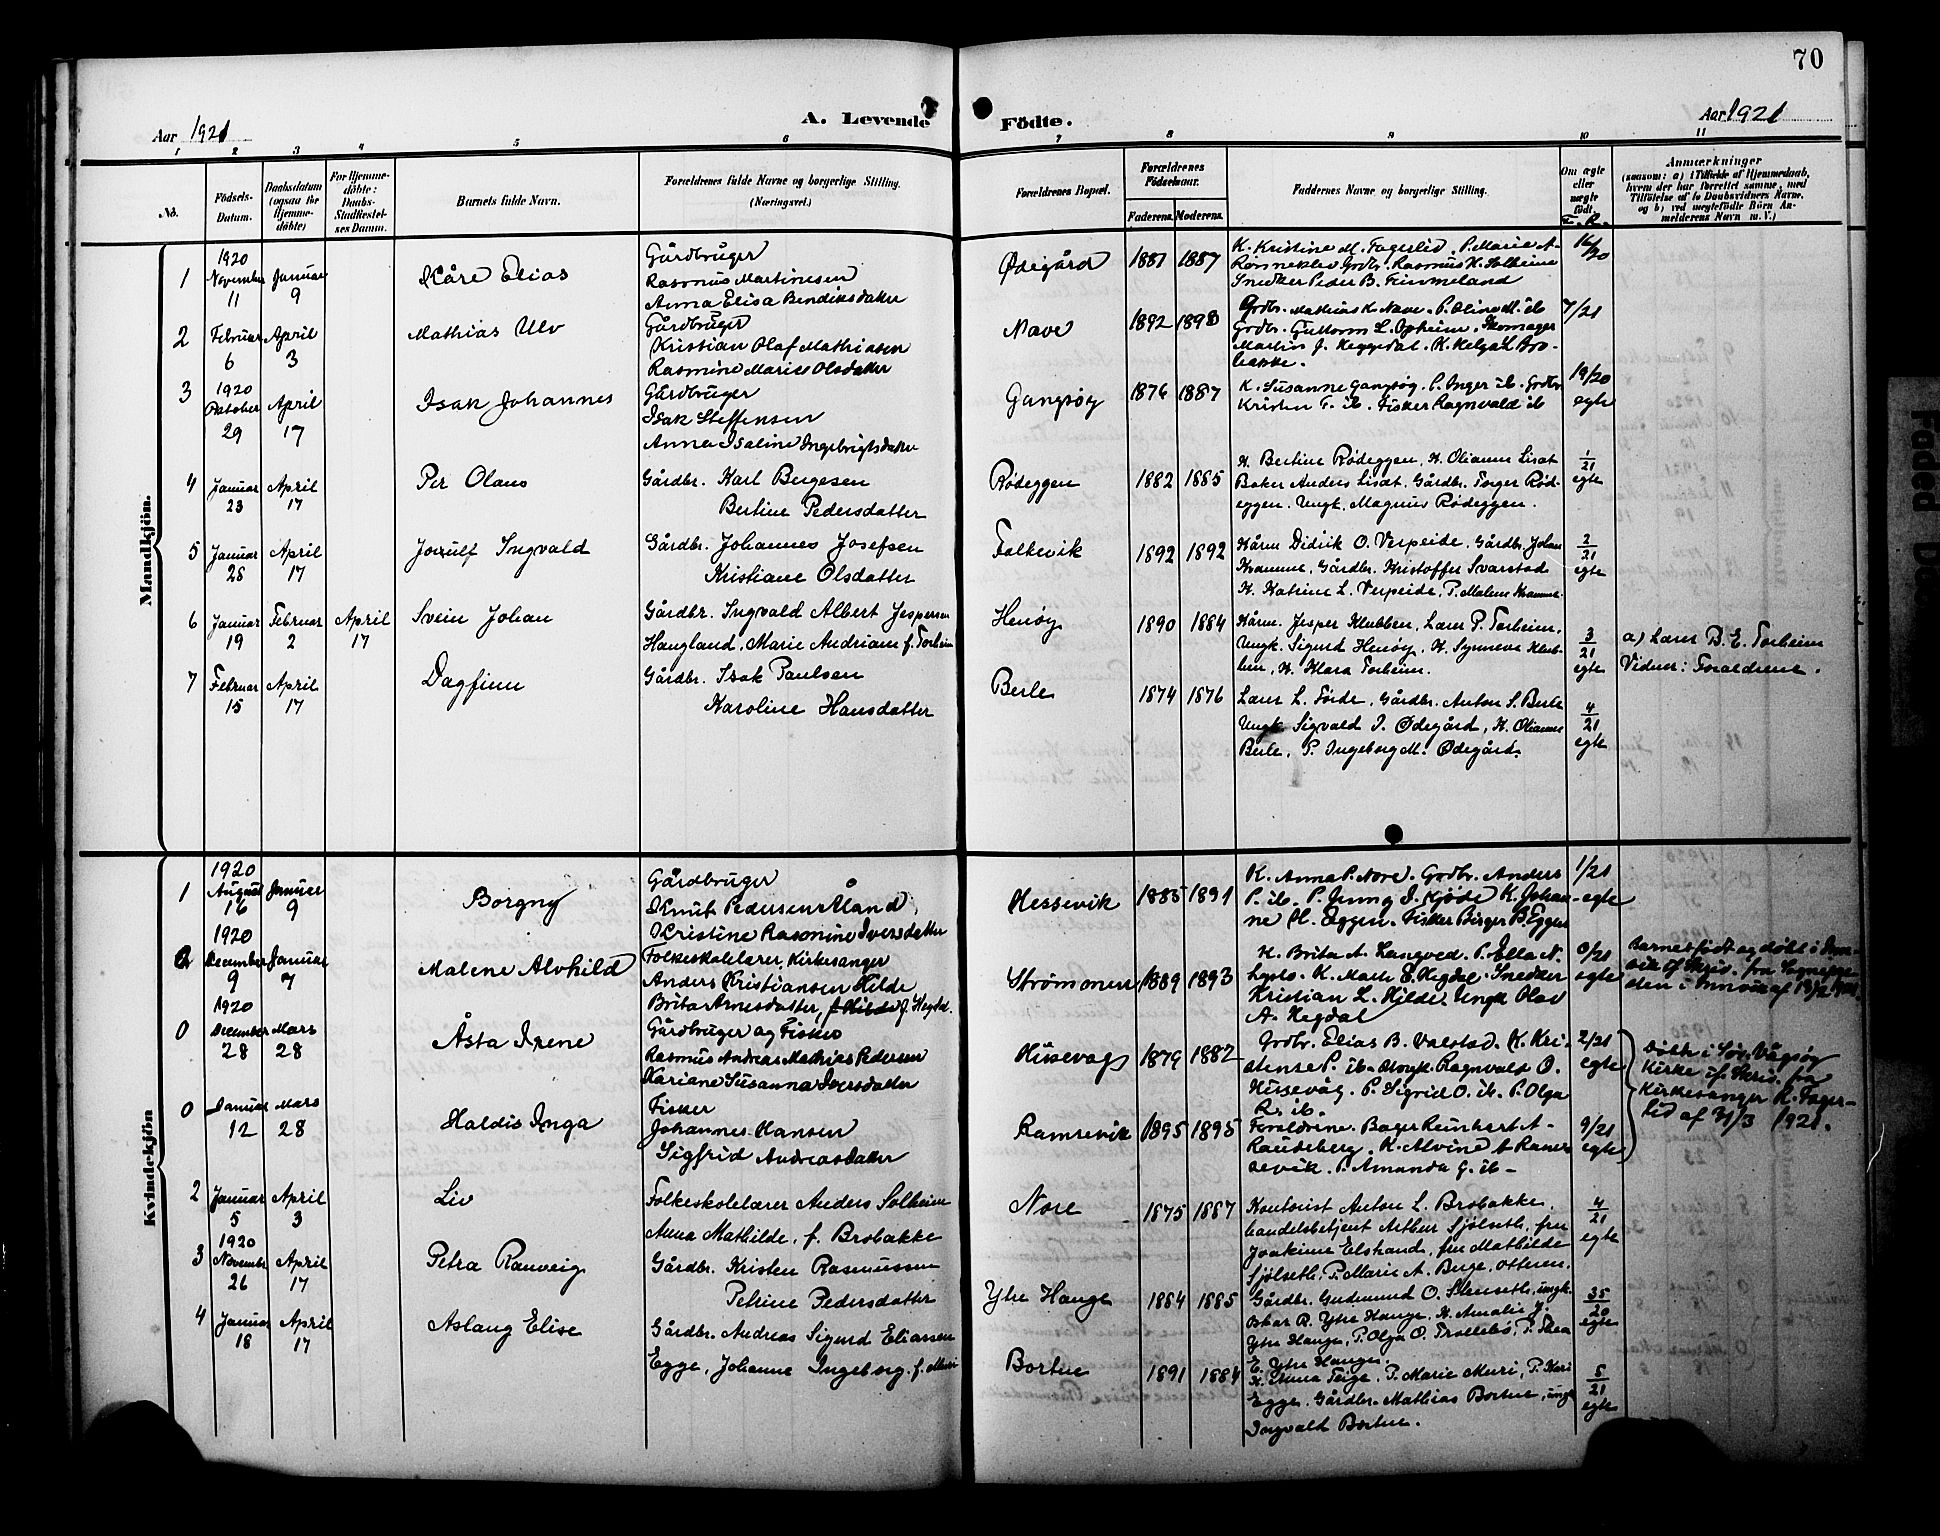 70
A. Levende Födte.
Aar 1921
Aar 1921
1 2 3 4 5 6 7 8 9 10 11
No.
Födsels-
Datum.
Daabsdatum
(ogsaa the
Hjemme-
döbte)
For Hjemme-
döbte:
Daabs-
Stadfæstel-
ses Datum.
Barnets fulde Navn.
Forældrenes fulde Navne og borgerlige Stilling.
(Næringsvei.)
Forældrenes Bopæl.
Forældrenes
Födselsaar.
Faderens. Moderens.
Faddernes Navne og borgerlige Stilling.
Om ægte
eller
uægte
født.
Anmærkninger
(saasom: a) i Tilfælde af Hjemmedaab,
hvem der har forrettet samme, med
Tilföielse af to Daabsvidners Navne,
og b) ved uægtefödte Börn An-
melderens Navn m. V.)
Mandkjön.
1
1920
November
11
Januar
9
Kåre Elias
Gårdbruger
Rasmus Martinesen
Anna Elisa Bendiksdatter
Ødegård
1881 1887
K. Kristine M. Fagerlid, P. Marie A-
Rønneklev Grdbr. Rasmus K. Solheim
Snedker Peder B. Fimmeland
16/20
2
Februar
6
April
3
Mathias Ulv
Gårdbruger
Kristian Olaf Mathiasen
Rasmine Marie Olsdatter
Nave
1892 1893
Grdbr. Mathias K. Nave. P. Oline M. ib
Grdbr. Guttorm L. Opheim. Skomager
Martin J. Heggedal. K. Helga L Bro-
bakke.
7/21
3
1920
Oktober
29
April
17
Isak Johannes
Gårdbruger
Isak Steffensen
Anna Isaline Ingebrigtsdatter
Gangsøy
1876 1887
K. Susanne Gangsøy. P. Inger ib. Grdbr
Kristen T. ib. Fisker Ragnvald ib
19/20
egte
4
Januar
23
April
17
Per Olaus
Gårdbr. Karl Bergesen
Bertine Pedersdatter
Rødeggen
1882 1885
K. Bertine Rødeggen, K. Olianne Lisæt
Baker Anders Lisæt. Gårdbr. Torger Rød-
eggen. Ungk. Magnus Rødeggen.
1/21
egte
5
Januar
28
April
17
Jorulf Ingvald
Gårdbr. Johannes Josefsen
Kristiane Olsdatter
Falkevik
1892 1892
Kårm. Didrik O. Verpeide. Gårdbr. Johan
Kramme, Gårdbr. Kristoffer Svarstad
K. Katrine L. Verpeide, P. Malene Kramme.
2/21
egte
6
Januar
19
Februar
2
April
17
Svein Johan
Gårdbr. Ingvald Albert Jespersen
Haugland, Marie Andriane f. Torheim
Henøy
1890 1884
Kårm. Jesper Klubben, Lærer P. Torheim,
Ungk. Sigurd Henøy, K. Synneva Klub-
ben, K. Klara Torheim.
3/21
egte
a) Lærer B. E. Torheim
Vidner: Forældrene.
7
Februar
15
April
17
Dagfinn
Gårdbr. Isak Paulsen
Karoline Hansdatter
Berle
1874 1876
Lærer L. Förde, Gårdbr. Anton S. Berle
Ungk Sigvald I. Ødegård, K. Olianne
Berle, P. Ingeborg M. Ødegård.
4/21
egte
Kvindekjön
1
1920
August
16
Januar
9
Borgny
Gårdbruger
Knut Pedersen Åland
Kristine Rasmine Iversdatter
Hessevik
1885 1891
K. Anna P. Nore. Grdbr. Anders
P. ib. P. Jenny I. Kjöde K. Johan-
ne H. Eggen. Fisker Birger B. Eggen
1/21
egte
2
1920
December
9
Januar
7
Malene Alvhild
Folkeskolelærer Kirkesanger
Anders Kristiansen Hilde
Brita Arnesdatter, f. Hegdal.
Strömmen
1889 1893
K. Brita A. Langved. P. Ella N.
K. Marte E. Hegdal. Snedker
Kristian L. Hilde. Ungk Olav
A. Hegdal
0/21
egte
Barnet født og döbt i Inn-
vik if. Skriv. fra Sogneppe
den i Innvik af 19/2 1921.
0
1920
December
28
Mars
28
Åsta Irene
Gårdbruger og Fisker
Rasmus Andreas Mathias Pedersen
Kariane Susanna Iversdatter
Husevåg
1879 1882
Grdbr. Elias B. Valstad. K. Kri-
stense P. ib. Ungk. Ragnvald O.
Husevåg. P. Sigrid O. ib. P. Olga
R. ib.
2/21
egte
Döbte i Sör-Vågsöy
Kirke if. Skriv. fra
Kirkesanger K. Fager-
lid af 31/3 1921.
0
Januar
12
Mars
28
Haldis Inga
Fisker
Johannes Hansen
Sigfrid Andreasdatter
Ramsevik
1895 1895
Forældrene. Bager Reinhart A-
Raudeberg. K. Alvine A Ram-
sevik. P. Amanda G. ib-
9/21
egte
2
Januar
5
April
3
Liv
Folkeskolelærer Anders Solheim
Anna Mathilde, f. Brobakke
Nore
1875 1887
Kontorist Anton L. Brobakke,
handelsbetjent Arthur Sjölseth, fru
Joakime Elstrand, fru Mathilde
Sjölseth, P. Marie A. Berge, Otteren.
4/21
egte
3
1920
November
26
April
17
Petra Ranveig
Gårdbr. Kristen Rasmussen
Petrine Pedersdatter
Ytre Hauge
1884 1885
Gårdbr. Gudmund O. Stenseth, ungk.
Oskar R. Ytre Hauge, K. Amalie J.
Ytre Hauge, P. Olga O. Trollebö, P. Thea
E. Ytre Hauge.
35/20
egte
4
Januar
18
April
17
Aslaug Elise
Gårdbr. Andreas Sigurd Eliassen
Egge, Johanne Ingeborg f. Muri
Bortne
1891 1884
K. Anna Feige, P. Marie Muri, P. Kari
Egge. Gårdbr. Mathias Bortne, ungk
Ingvald Bortne.
5/21
egte